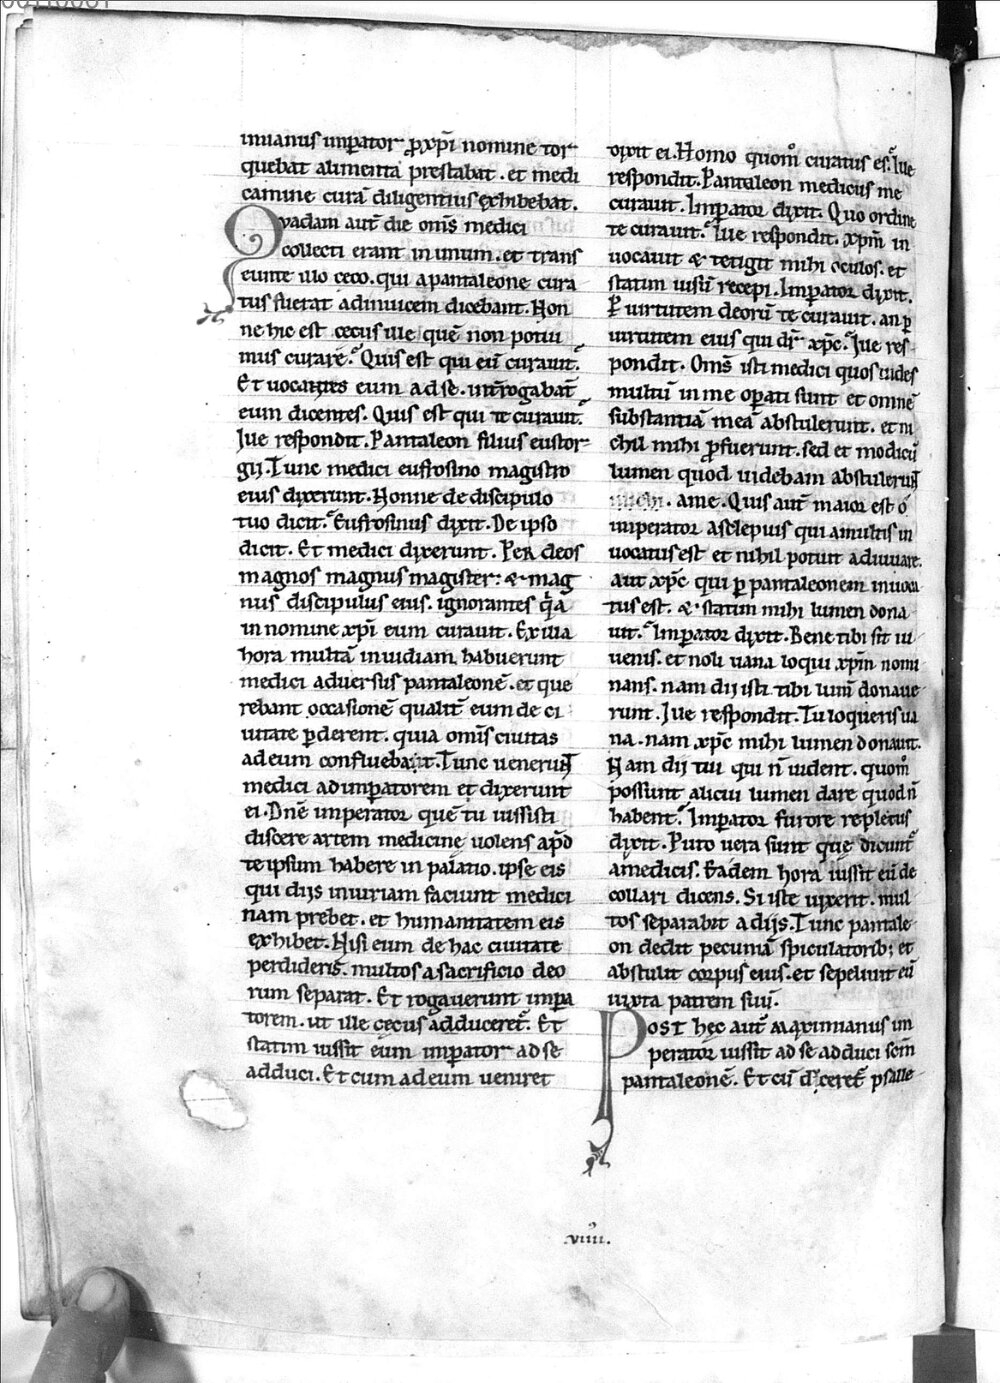 imianus imperator p xpi nomine tor
quebat alimenta prestabat. et medi
camine curā diligentius exhibebat.
Quadam aut̄ die om̄s medici
collecti erant in unum. et trans
eunte illo ceco. qui a pantaleone cura
tus fuerat adinuicem dicebant. Non
ne hic est cecus ille quē non potui
mus curare? Quis est qui eū curauit?
Et uocantes eum ad se. int̄rogabant̄
eum dicentes. Quis est qui te curauit?
Ille respondit. Pantaleon filius eustor
gij. Tunc medici eufrosino magistro
eius dixerunt. Nonne de discipulo
tuo dicit? Eufrosinus dixit. De ipso
dicit. Et medici dixerunt. Per deos
magnos magnus magister: & mag
nus discipulus eius. ignorantes q̄a
in nomine xp̄i eum curauit. Ex illa
hora multā inuidiam habuerunt
medici aduersus pantaleonē. et que
rebant occasionē qualit̄ eum de ci
uitate p̄derent. quia om̄is ciuitas
ad eum confluebant. Tunc uenerunt
medici ad imp̄atorem et dixerunt
ei. Dn̄e imperator quē tu iussisti
discere artem medicinę uolens ap̄d
te ipsum habere in palatio. ipse eis
qui dijs iniuriam faciunt medici
nam prebet. et humanitatem eis
exhibet. Nisi eum de hac ciuitate
perdideris. multos a sacrificio deo
rum separat. Et rogauerunt imp̄a
torem. ut ille cecus adduceret̄. Et
statim iussit eum imp̄ator ad se
adduci. Et cum ad eum ueniret
dixit ei. Homo quom̄ curatus es? Ille
respondit. Pantaleon medicus me
curauit. Imp̄ator dixit. Quo ordine
te curauit? Ille respondit. xp̄m in
uocauit & tetigit mihi oculos. et
statim uisū recepi. Imp̄ator dixit.
P̄ uirtutem deorū te curauit. an p̄
uirtutem eius qui dr̄ xp̄c? Ille res
pondit. Om̄s isti medici quos uides
multū in me op̄ati sunt et omnē
substantiā meā abstulerunt. et ni
chil mihi p̄fuerunt. sed et modicū
lumen quod uidebam abstulerunt
michi. a me. Quis aut̄ maior est o
imperator asclepius qui a multis in
uocatus est et nihil potuit adiuuare.
aut xp̄c qui p̄ pantaleonem inuoca
tus est. & statim mihi lumen dona
uit? Imp̄ator dixit. Bene tibi sit iu
uenis. et noli uana loqui xp̄m nomi
nans. nam dij isti tibi lum̄ donaue
runt. Ille respondit. Tu loqueris ua
na. nam xp̄c mihi lumen donauit.
Nam dij tui qui n̄ uident. quom̄
possunt alicui lumen dare quod n̄
habent? Imp̄ator furore repletus
dixit. Puto uera sunt quę dicunt̄
a medicis. Eadem hora iussit eū de
collari dicens. Si iste uixerit. mul
tos separabit a dijs. Tunc pantale
on dedit pecuniā spiculatorib; et
abstulit corpus eius. et sepeliuit eū
iuxta patrem suū.
Post hęc aut̄ maximianus im
perator iussit ad se adduci sc̄m
pantaleonē. Et cū d.ceret̄ psalle
viiii.